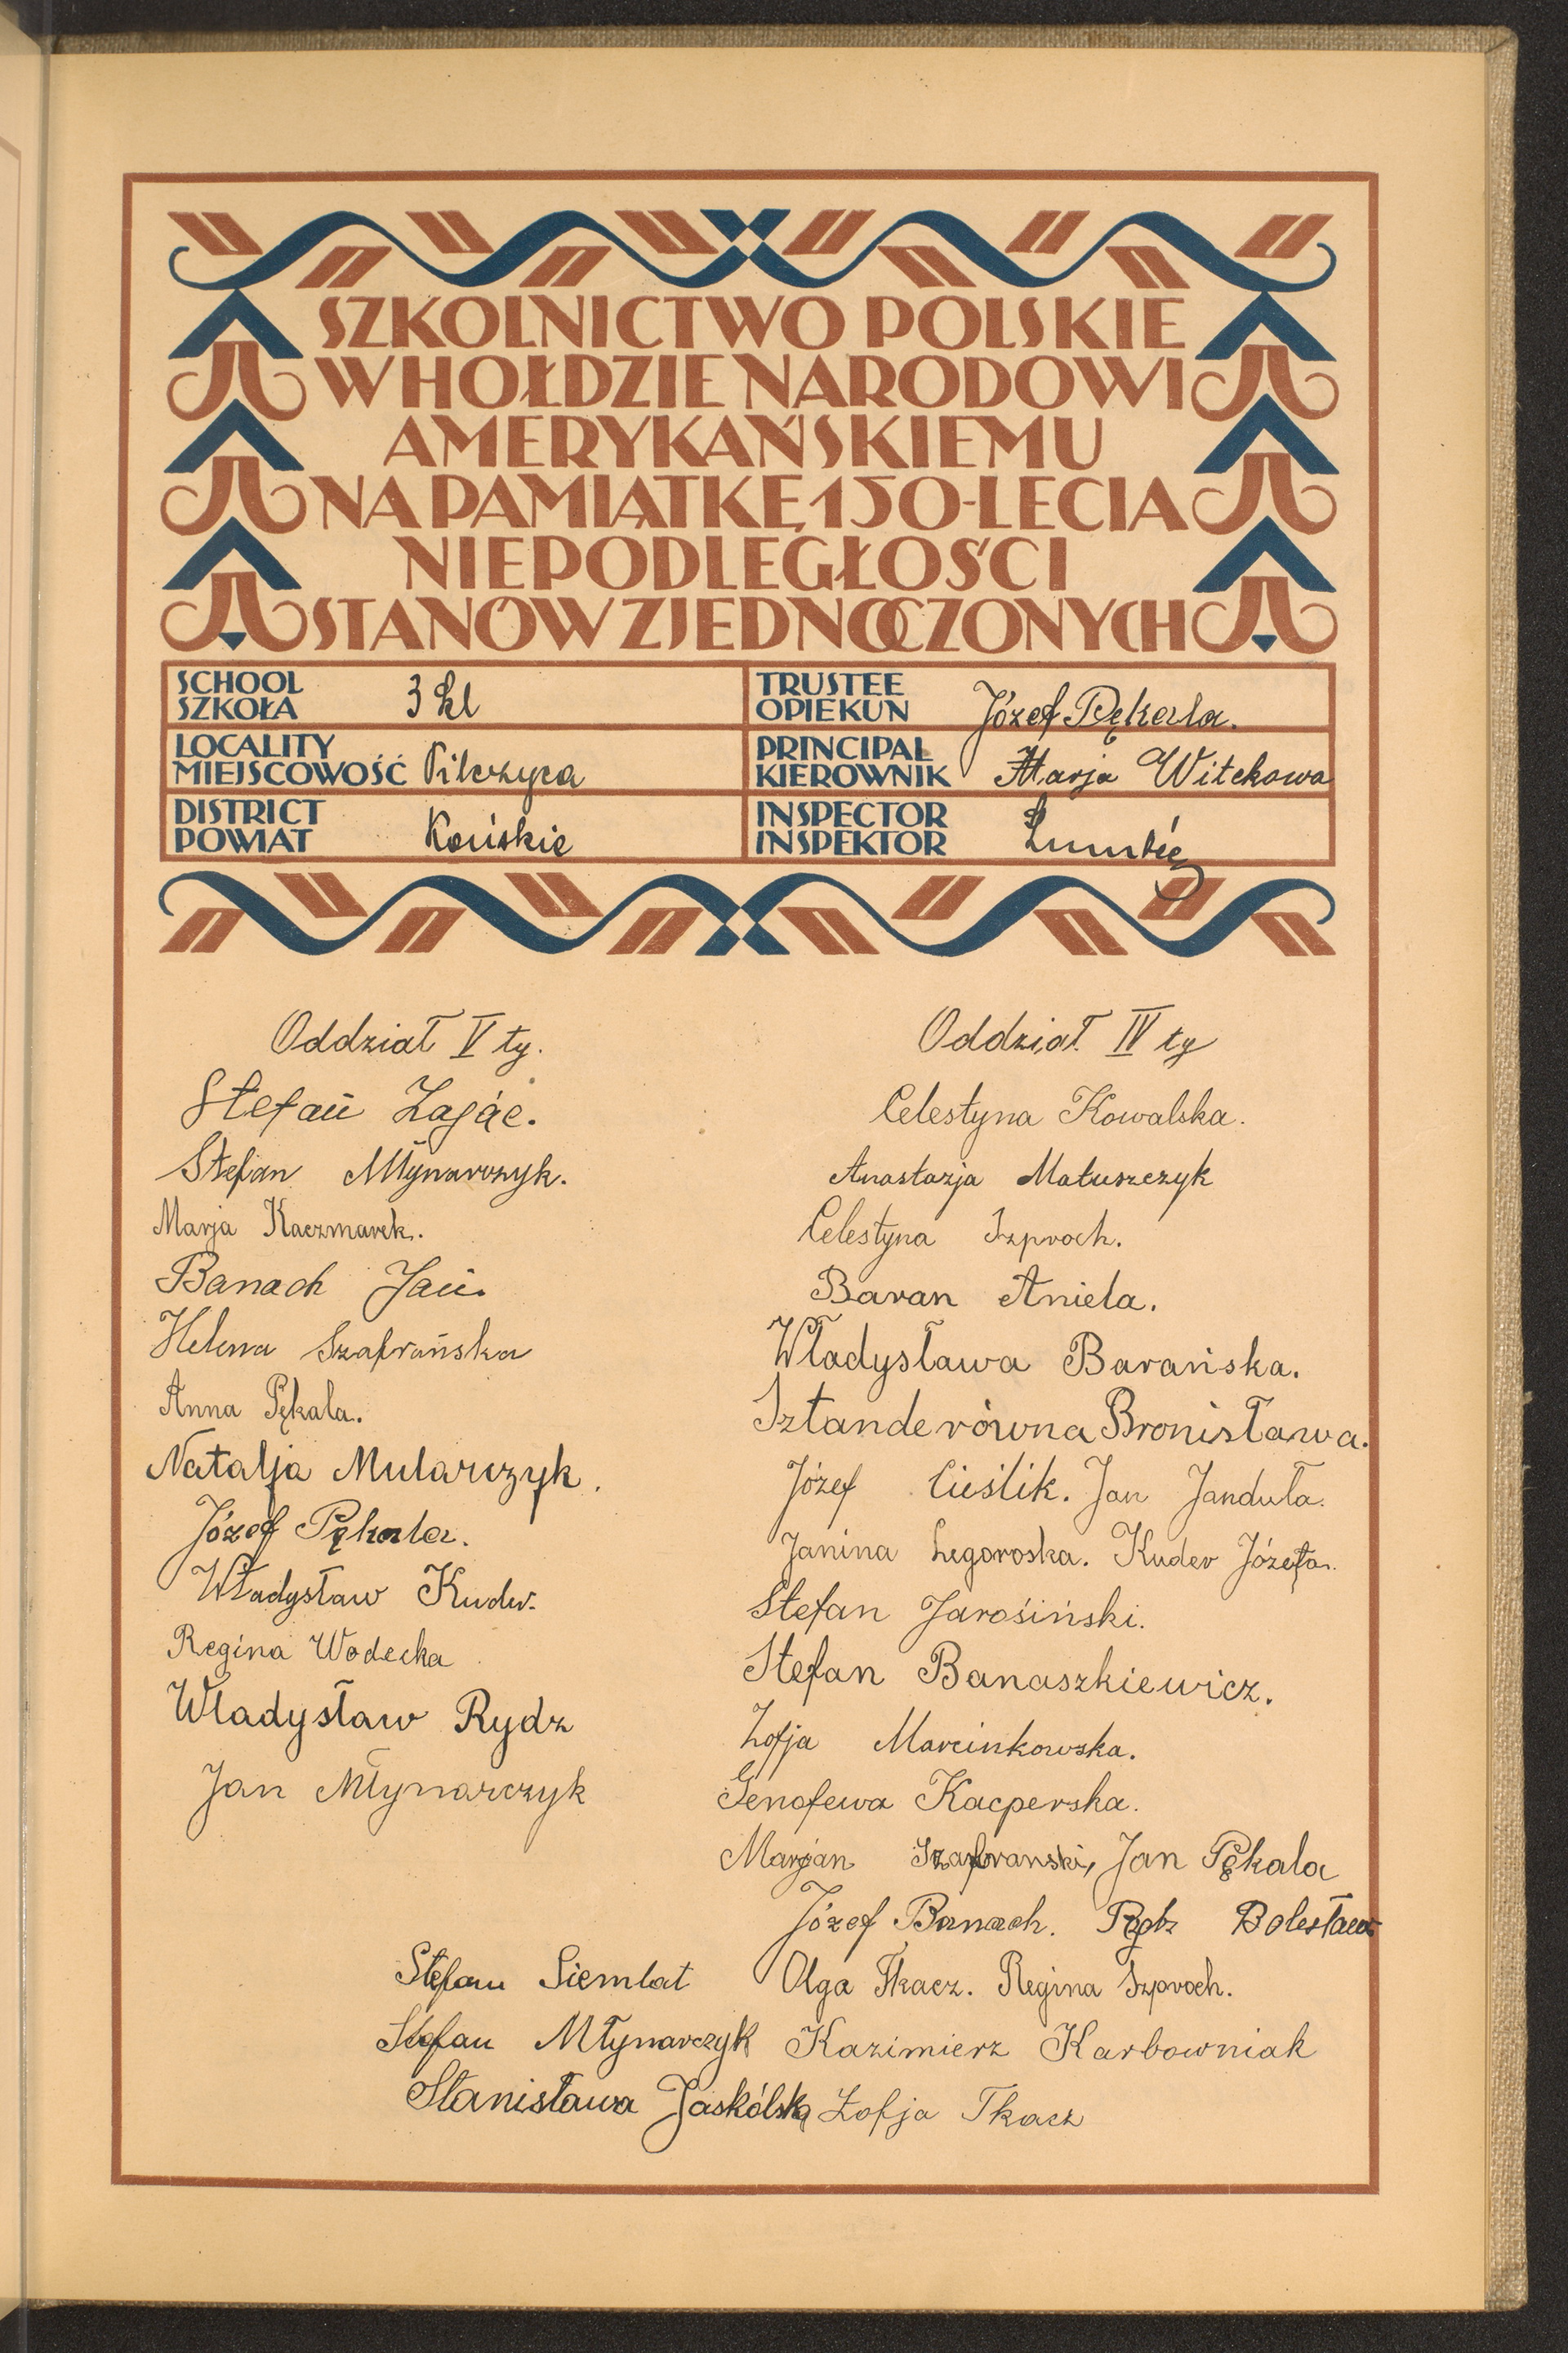 SZKOLNICTWO POLSKIE
W HOŁDZIE NARODOWI
AMERYKAŃSKIEMU
NA PAMIĄTKĘ 150-LECIA
NIEPODLEGŁOŚCI
STANÓW ZJEDNOCZONYCH
SCHOOL
SZKOŁA 3 kl
TRUSTEE
OPIEKUN Józef Pękala.
LOCALITY
MIEJSCOWOŚĆ Pilczyca
PRINCIPAL
KIEROWNIK Marja Witekowa
DISTRICT
POWIAT Końskie
INSPECTOR
INSPEKTOR
Oddział V ty.
Stefan Zając.
Stefan Młynarczyk.
Marja Kaczmarek.
Banach Jan.
Helena Szafrańska
Anna Pękala.
Natalja Mularczyk.
Józef Pękala.
Władysław Kuder.
Regina Wodecka
Władysław Rydz
Jan Młynarczyk
Oddział IV ty
Celestyna Kowalska.
Anastazja Matuszczyk
Celestyna Szproch.
Baran Aniela.
Władysława Barańska.
Sztanderówna Bronisława.
Józef Cieślik. Jan Janduła.
Janina Kuder Józefa.
Stefan Jarosiński.
Stefan Banaszkiewicz.
Zofja Marcinkowska.
Genofewa Kacperska.
Marjan Szafranski, Jan Pękala
Józef Banach. Bolesław
Stefan Siemlat Olga Tkacz. Regina Szproch.
Stefan Młynarczyk Kazimierz Karbowniak
Stanisława Jaskólska Zofja Tkacz